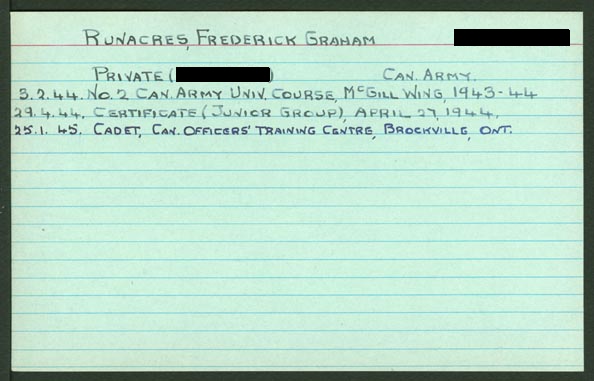 RUNACRES, FREDERICK GRAHAM
PRIVATE ( ) CAN. ARMY.
3.2.44. NO. 2 CAN. ARMY UNIV. COURSE, MCGILL WING, 1943-44
29.4.44. CERTIFICATE (JUNIOR GROUP), APRIL 27, 1944.
25.1.45. CADET, CAN. OFFICERS' TRAINING CENTRE, BROCKVILLE, ONT.